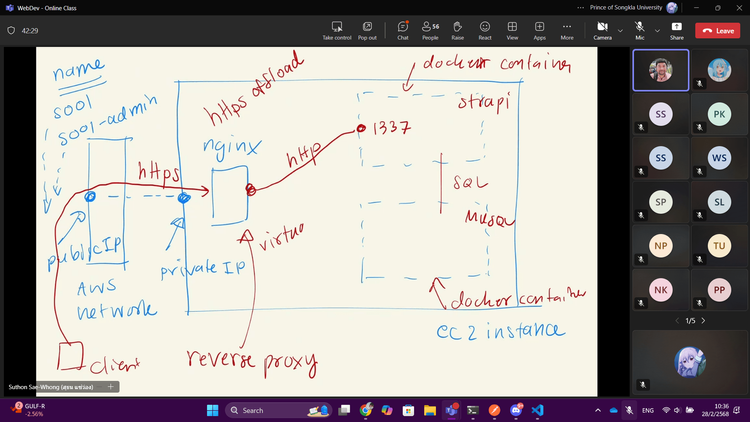 WebDev - Online Class
Prince of Songkla University
42:29
Take control
Pop out
Chat
56
People
Raise
React
View
Apps
More
Camera
Mic
Share
Leave
name
s001
s001-admin
https offload
docker container
strapi
nginx
1337
https
http
SQL
MySQL
public IP
private IP
virtua
AWS
network
docker container
ec2 instance
client
reverse proxy
SS
PK
SS
WS
SP
SL
NP
TU
NK
PP
1/5
2
GULF-R
-2.56%
Search
ENG
10:36
28/2/2568